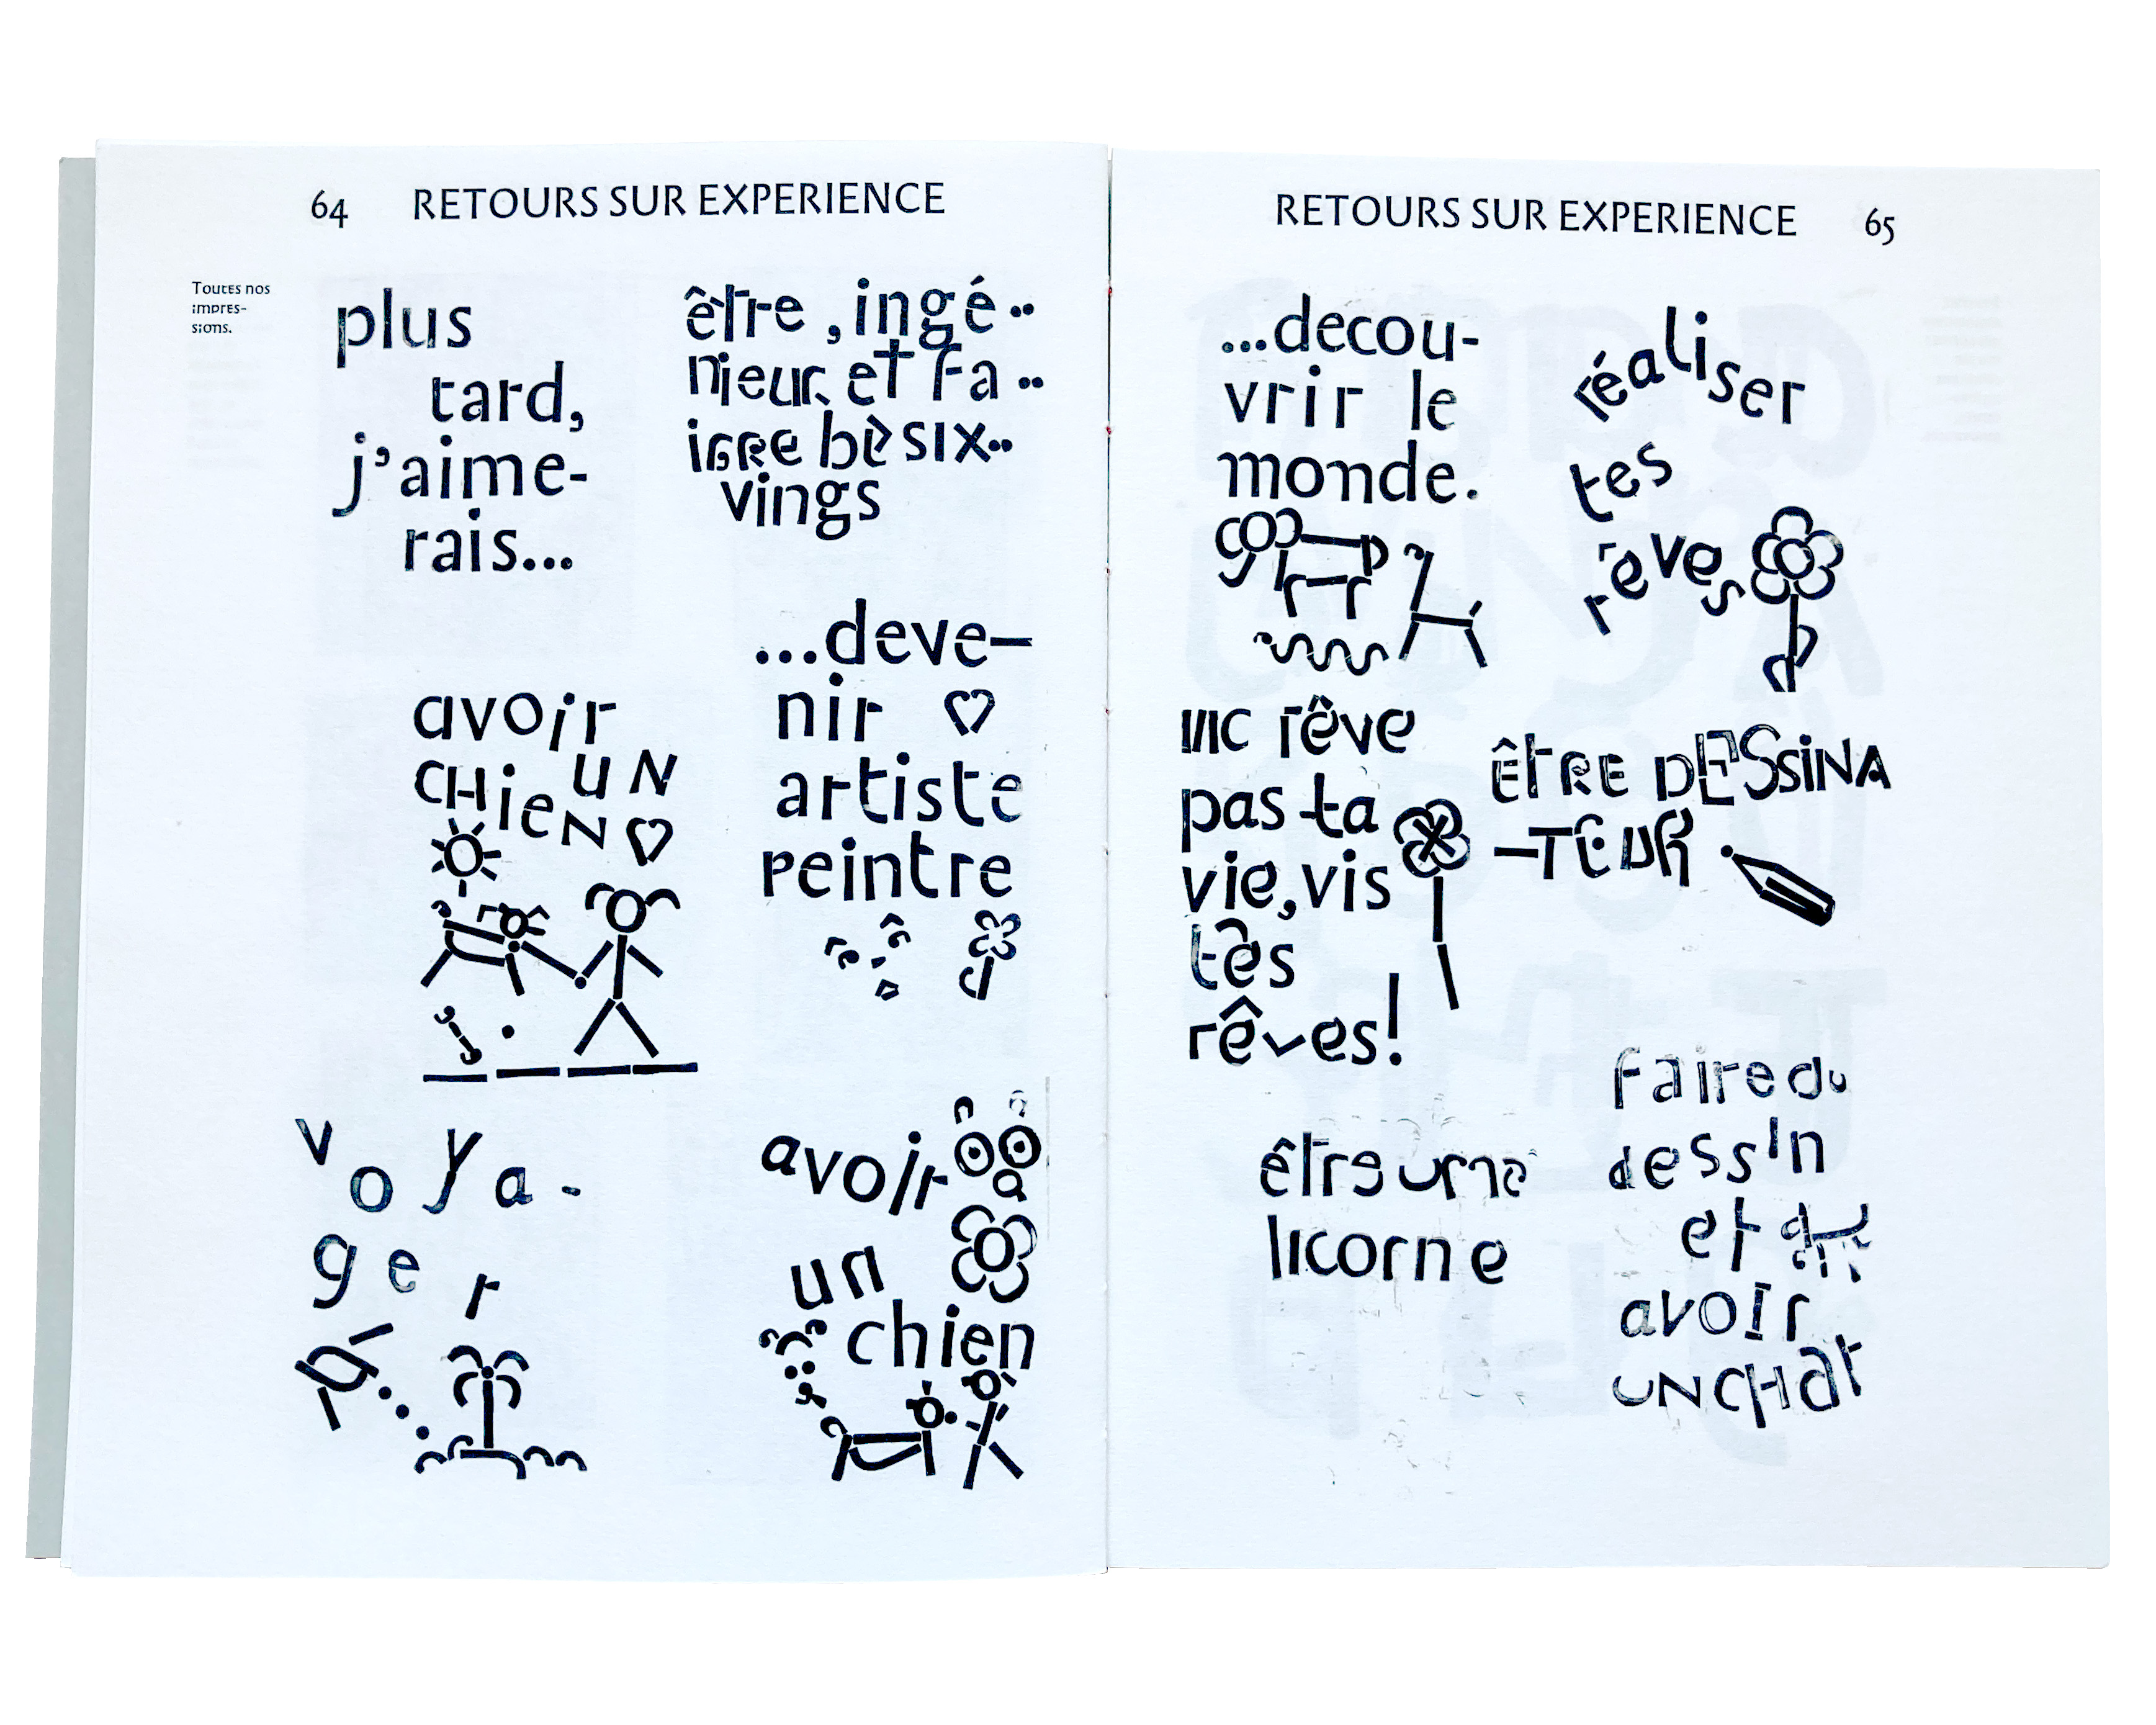 64 RETOURS SUR EXPERIENCE
Toutes nos
impres-
sions.
plus
tard,
j'aime-
rais...
être , ingé..
nieur et fa..
vings
avoir
UN
CHieN
...deve-
nir
artiste
peintre
voya-
ger
avoir
un
chien
RETOURS SUR EXPERIENCE 65
...decou-
vrir le
monde.
réaliser
tes
rêves
rêve
pas ta
vie, vis
tes
rêves!
ÊtRE DESSiNA
-TEUR
être une
licorne
faire du
dessin
et
avoir
UNCHat